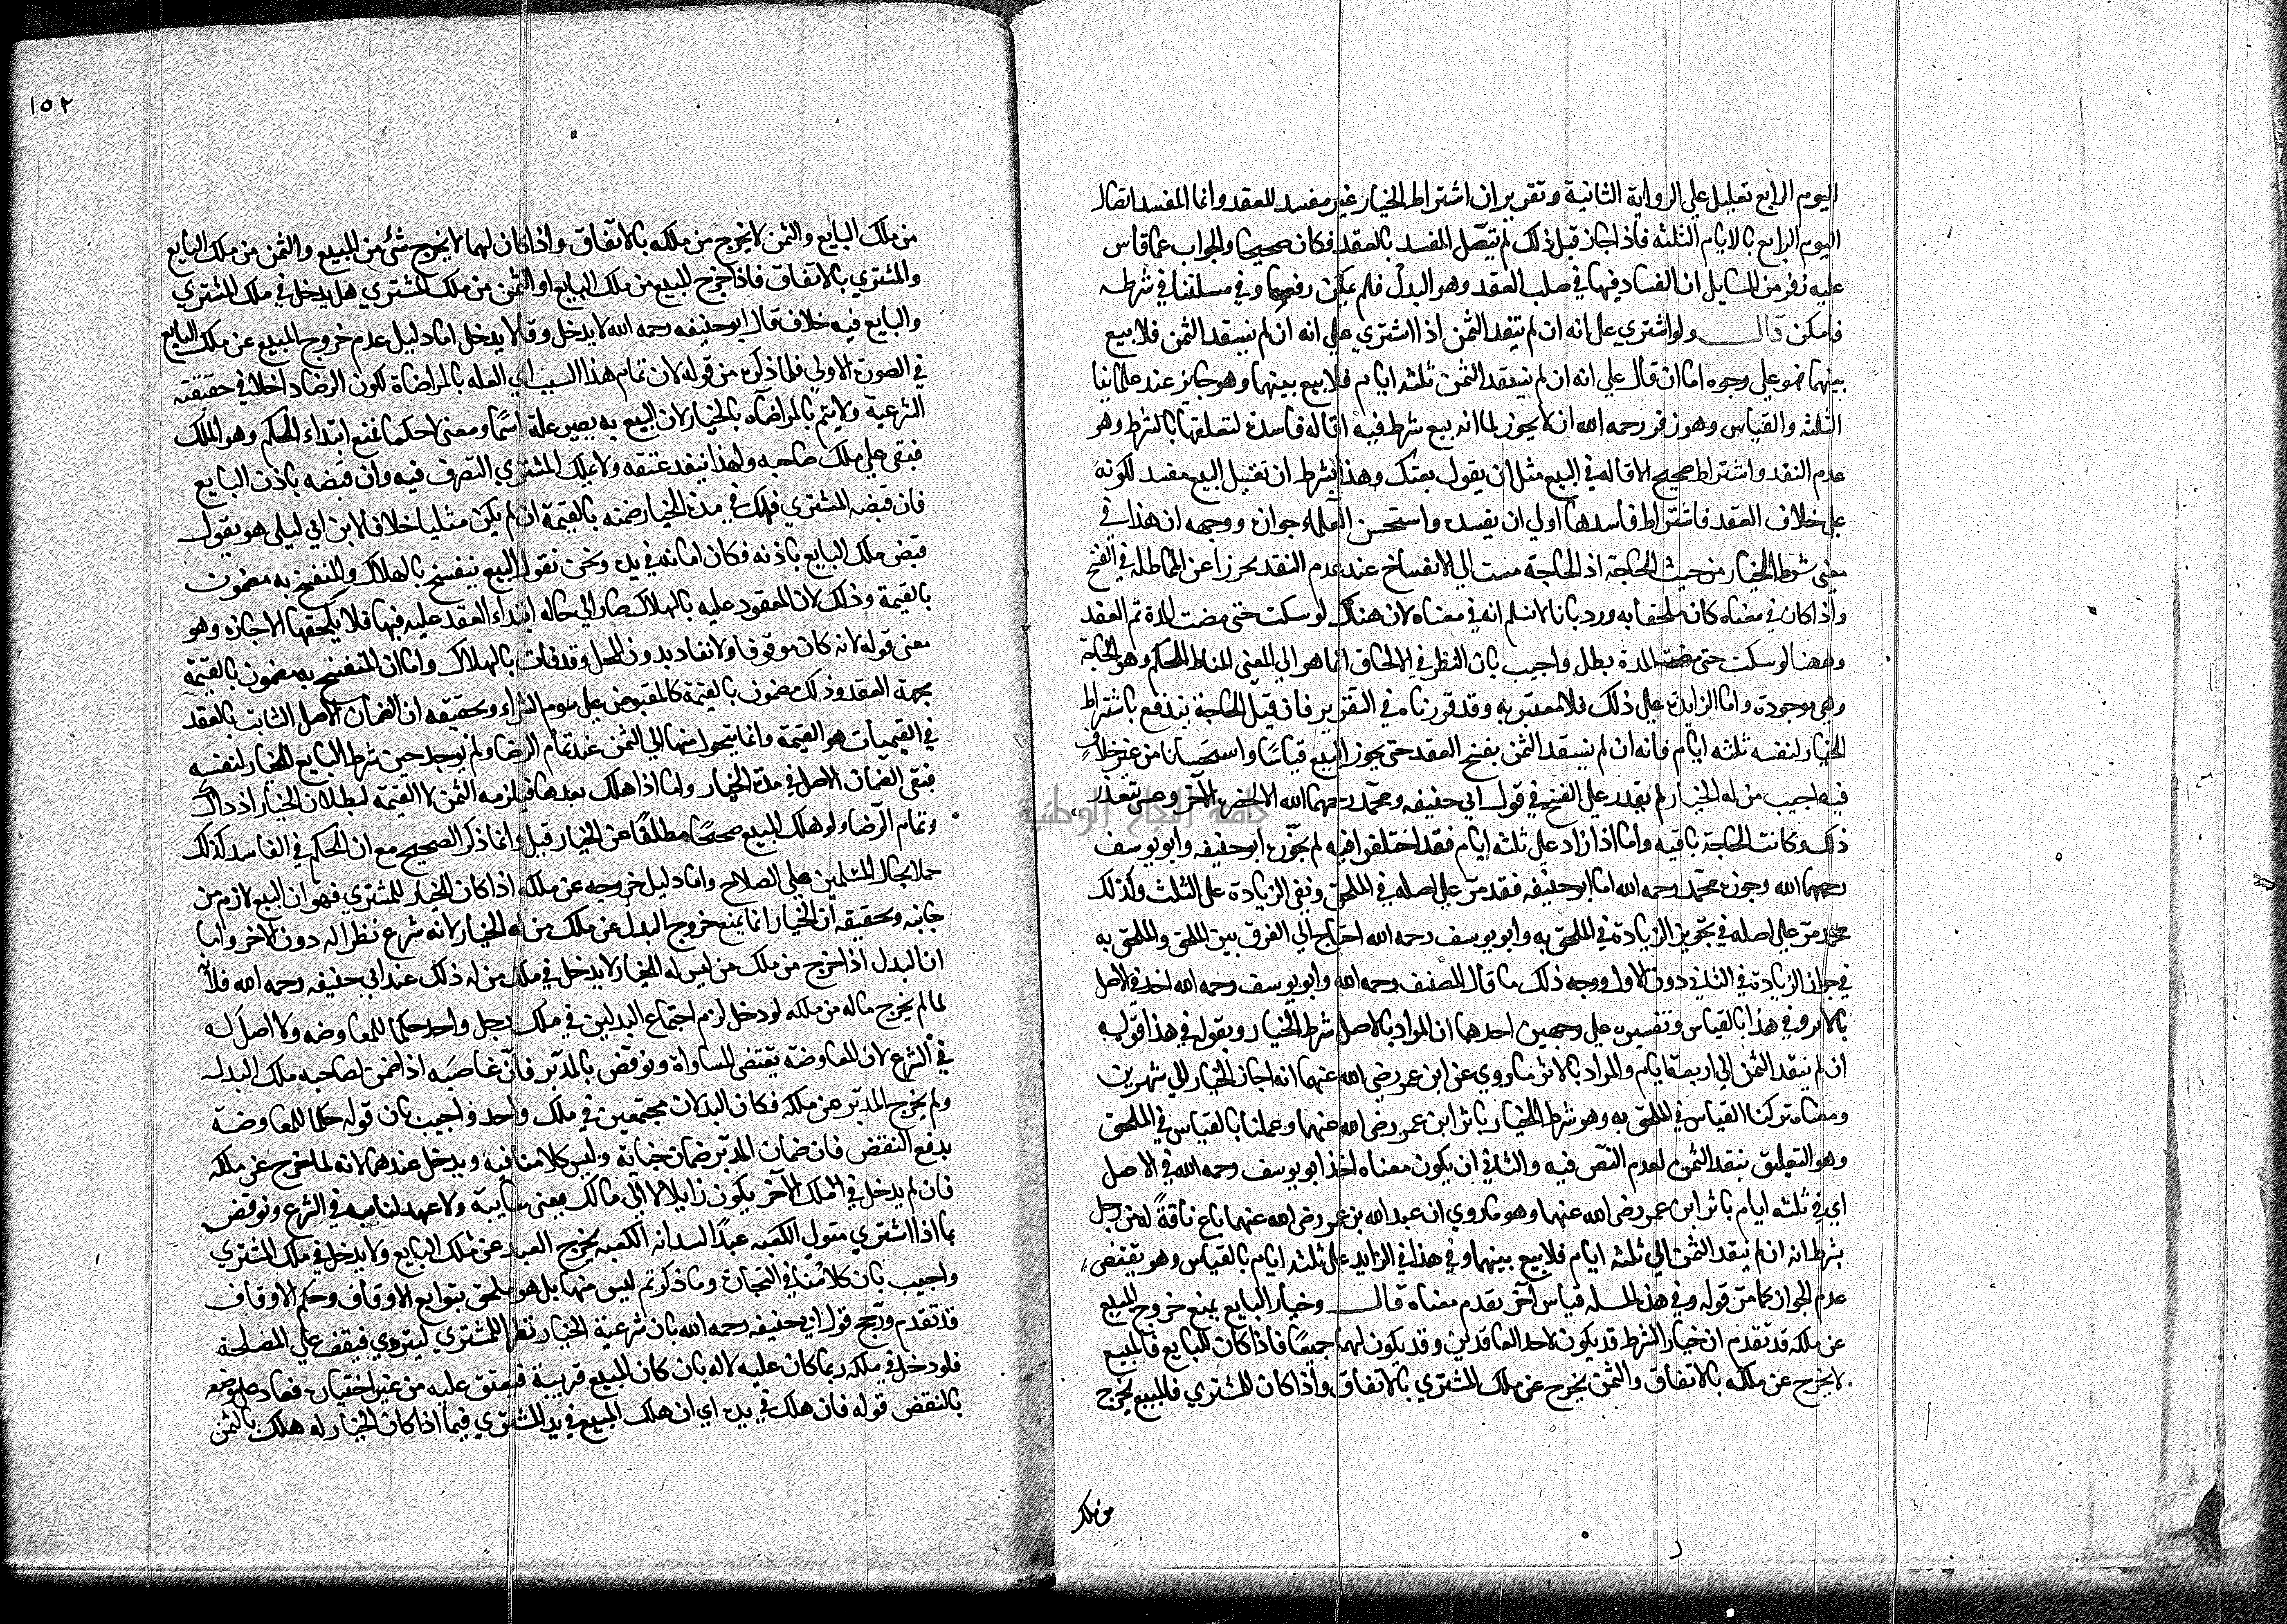 اليوم الرابع تعليل علي الرواية الثانية وتقريره ان اشتراط الخيار غير مفسد للعقد وانما المفسد اتصال
اليوم الرابع بالايام الثلثه فاذا جاز قبل ذلك لم يتصل المفسد بالعقد فكان صحيحا والجواب عما قاس
عليه زفر من المسايل ان الفساد فيها في صلب العقد وهو البدل فلم يمكن رفعه وفي مسلتنا في شرطه
فامكن قال ولو اشتري علي انه ان لم ينقد الثمن اذا اشتري علي انه ان لم ينقد الثمن فلا بيع
بينهما فهو علي وجوه اما ان قال علي انه ان لم ينقد الثمن ثلثه ايام فلا بيع بينهما وهو جايز عند علمائنا
الثلثه والقياس وهو زفر رحمه الله ان لا يجوز لما انه بيع شرط فيه اقاله فاسدة لتعلقها بالشرط وهو
عدم النقد واشتراط صحيح الاقاله في البيع مثل ان يقول بعتك وهذا بشرط ان تقيل البيع مفسد لكونه
علي خلاف العقد فاشتراط فاسدها اولي ان يفسده واستحسن العلماء جوازه ووجهه ان هذا في
معني شرط الخيار من حيث الحاجة اذ الحاجة مست الي الانفساخ عند عدم النقد تحرزا عن المماطله في الفسخ
واذا كان في معناه كان ملحقا به ورد بانا لا نسلم انه في معناه لان هناك لو سكت حتي مضت المدة تم العقد
وههنا لو سكت حتي مضت المدة بطل واجيب بان النظر في الالحاق انما هو الي المعني المناط للحكم وهو الحاجة
وهي موجودة واما الزايد علي ذلك فلا معتبر به وقد قررناه في التقرير فان قيل الحاجة تندفع باشتراط
الخيار لنفسه ثلثه ايام فانه ان لم ينقد الثمن بفسخ العقد حتي يجوز البيع قياسًا واستحسانا من غير خلاف
فيه اجيب من له الخيار لم يقدر علي الفسخ في قول ابي حنيفه ومحمد رحمهما الله الا بحضرة الآخر وعسي يتعذر
ذلك وكانت الحاجة باقيه واما اذا زاد علي ثلثه ايام فقد اختلفوا فيه لم يجوزه ابو حنيفه وابو يوسف
رحمهما الله وجوزه محمد رحمه الله اما ابو حنيفه فقد مر علي اصله في الملحق ونفي الزيادة علي الثلث وكذلك
محمد مر علي اصله في تجويز الزيادة في الملحق به وابو يوسف رحمه الله احتاج الي الفرق بين الملحق والملحق به
في جواز الزيادة في الثاني دون الاول ووجه ذلك ما قال المصنف رحمه الله وابو يوسف رحمه الله اخذ في الاصل
بالاثر وفي هذا بالقياس وتفسيره علي وجهين احدهما ان المراد بالاصل شرط الخيار وبقوله في هذا قوله
ان لم ينقد الثمن الي اربعة ايام والمراد بالاثر ما روي عن ابن عمر رضي الله عنهما انه اجاز الخيار الي شهرين
ومعناه تركنا القياس في الملحق به وهو شرط الخيار باثر ابن عمر رضي الله عنهما وعملنا بالقياس في الملحق
وهو التعليق بنقد الثمن لعدم النص فيه والثاني ان يكون معناه اخذ ابو يوسف رحمه الله في الاصل
اي في ثلثه ايام باثر ابن عمر رضي الله عنهما وهو ما روي ان عبد الله بن عمر رضي الله عنهما باع ناقةً له من رجل
بشرط انه ان لم ينقد الثمن الي ثلثه ايام فلا بيع بينهما وفي هذا في الزايد علي ثلثه ايام بالقياس وهو يقتضي
عدم الجواز كما مر قوله وفي هذه المسله قياس آخر تقدم معناه قال وخيار البايع يمنع خروج المبيع
عن ملكه قد تقدم ان خيار الشرط قد يكون لاحد العاقدين وقد يكون لهما جميعًا فاذا كان للبايع فالمبيع
لا يخرج عن ملكه بالاتفاق والثمن يخرج عن ملك المشتري بالاتفاق واذا كان للمشتري فالمبيع يخرج
من ملك
١٥٢
من ملك البايع والثمن لا يخرج من ملكه بالاتفاق واذا كان لهما لا يخرج شئ من المبيع والثمن من ملك البايع
والمشتري بالاتفاق فاذا خرج المبيع من ملك البايع او الثمن من ملك المشتري هل يدخل في ملك المشتري
والبايع فيه خلاف قال ابو حنيفه رحمه الله لا يدخل وقالا يدخل اما دليل عدم خروج المبيع عن ملك البايع
في الصورة الاولي فلما ذكره من قوله لان تمام هذا السبب اي العله بالمراضاة لكون الرضا داخلا في حقيقته
الشرعية ولا يتم بالمراضاه بالخيار لان البيع به يصير علة اسمًا ومعني لا حكما فمنع ابتداء الحكم وهو الملك
فبقي علي ملك صاحبه ولهذا ينفد عتقه ولا يملك المشتري التصرف فيه وان قبضه باذن البايع
فان قبضه المشتري فهلك في مدة الخيار ضمنه بالقيمة ان لم يكن مثليا خلافا لابن ابي ليلي هو يقول
قبض ملك البايع باذنه فكان امانه في يده ونحن نقول البيع ينفسخ بالهلاك والمنفسخ به مضمون
بالقيمة وذلك لان المعقود عليه بالهلاك صار الي حاله ابتداء العقد عليه فيها فلا يلحقها الاجازه وهو
معني قوله لانه كان موقوفا ولا نفاد بدون المحل وقد فات بالهلاك واما ان المنفسخ به مضمون بالقيمة
بجهة العقد وذلك مضمون بالقيمة كالمقبوض علي سوم الشراء وتحقيقه ان الضمان الاصل الثابت بالعقد
في القيميات هو القيمة وانما يتحول منها الي الثمن عند تمام الرضا ولم يوجد حين شرط البايع الخيار لنفسه
فبقي الضمان الاصل في مدة الخيار واما اذا هلك بعدها فيلزمه الثمن لا القيمة لبطلان الخيار اذ ذاك
وتمام الرضا ولو هلك المبيع صحيحًا مطلقًا عن الخيار قبل وانما ذكر الصحيح مع ان الحكم في الفاسد كذلك
حملا لحال المسلمين علي الصلاح واما دليل خروجه عن ملكه اذا كان الخيار للمشتري فهو ان البيع لازم من
جانبه وتحقيقه ان الخيار انما يمنع خروج البدل عن ملك من له الخيار لانه شرع نظرا له دون الاخر واما
ان البدل اذا خرج من ملك من ليس له الخيار لا يدخل في ملك من له ذلك عند ابي حنيفه رحمه الله فلانه
لما لم يخرج ماله من ملكه لو دخل لزم اجتماع البدلين في ملك رجل واحد حكما للمعاوضه ولا اصل له
في الشرع لان المعاوضة يقتضي المساواة ونوقض بالمدبر فان غاصبه اذا ضمن لصاحبه ملك البدل
ولم يخرج المدبر عن ملكه فكان البدلان مجتمعين في ملك واحد واجيب بان قوله حكما للمعاوضة
يدفع النقض فان ضمان المدبر ضمان جناية وليس كلامنا فيه ويدخل عندهما لانه لما خرج عن ملكه
فان لم يدخل في الملك الآخر يكون زايلا لا الي مالك يعني سايبة ولا عهد لنا به في الشرع ونوقض
بما اذا اشتري متولي الكعبه عبدًا لسدانه الكعبه يخرج العبد عن ملك البايع ولا يدخل في ملك المشتري
واجيب بان كلامنا في التجارة وما ذكرتم ليس منها بل هو ملحق بتوابع الاوقاف وحكم الاوقاف
قد تقدم ورجح قول ابي حنيفه رحمه الله بان شرعية الخيار نظرا للمشتري ليتروي فيقف علي المصلحة
فلو دخل في ملكه ربما كان عليه لا له بان كان المبيع قريبة فيعتق عليه من غير اختياره فعاد علي موضعه
بالنقض قوله فان هلك في يده اي ان هلك المبيع في يد المشتري فيما اذا كان الخيار له هلك بالثمن